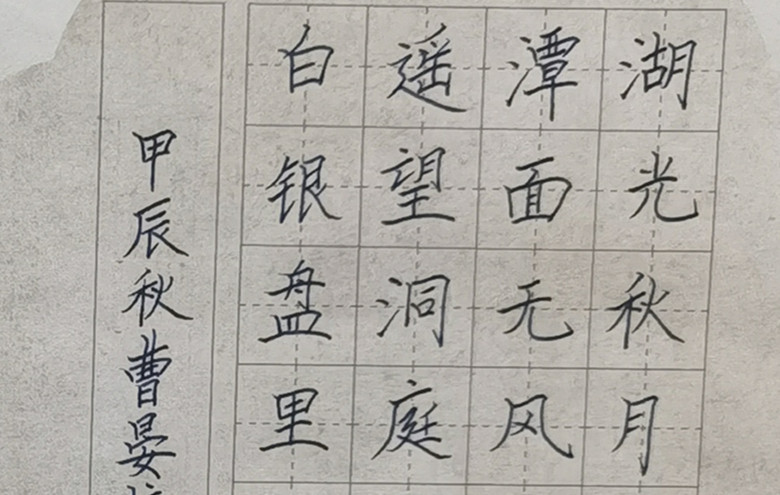 湖光秋月
潭面无风
遥望洞庭
白银盘里
甲辰秋曹晏